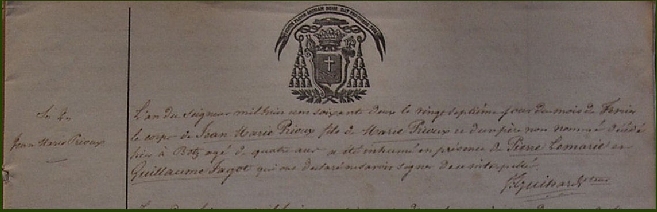 Se 2n
Jean Marie Prioux
L'an du Seigneur mil huit cen soixante deux le vingt septième jour du mois de Fevrier
le corps de Jean Marie Prioux fils de Marie Prioux et d'un père non nommé décédé
hier à agé de quatre ans a été inhumé en présence de Pierre Lomarie et
Guillaume Jagot qui ont déclaré ne savoir signer de ce interpellés